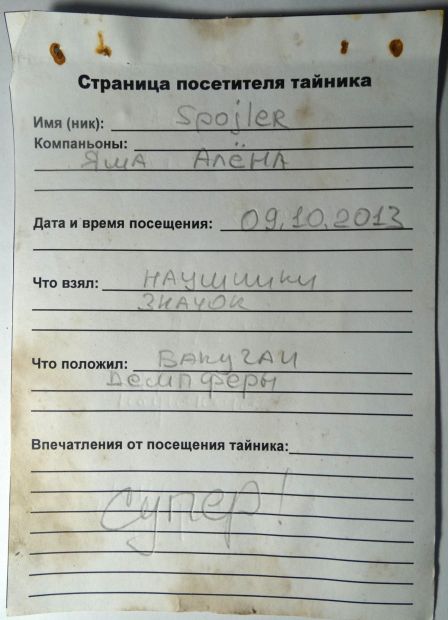 Страница посетителя тайника
Имя (ник): Spojler
Компаньоны:
Яма Алёна
Дата и время посещения: 09.10.2013
Что взял: наушники
значок
Что положил: Бакуган
Демпферы
Впечатления от посещения тайника:
супер!